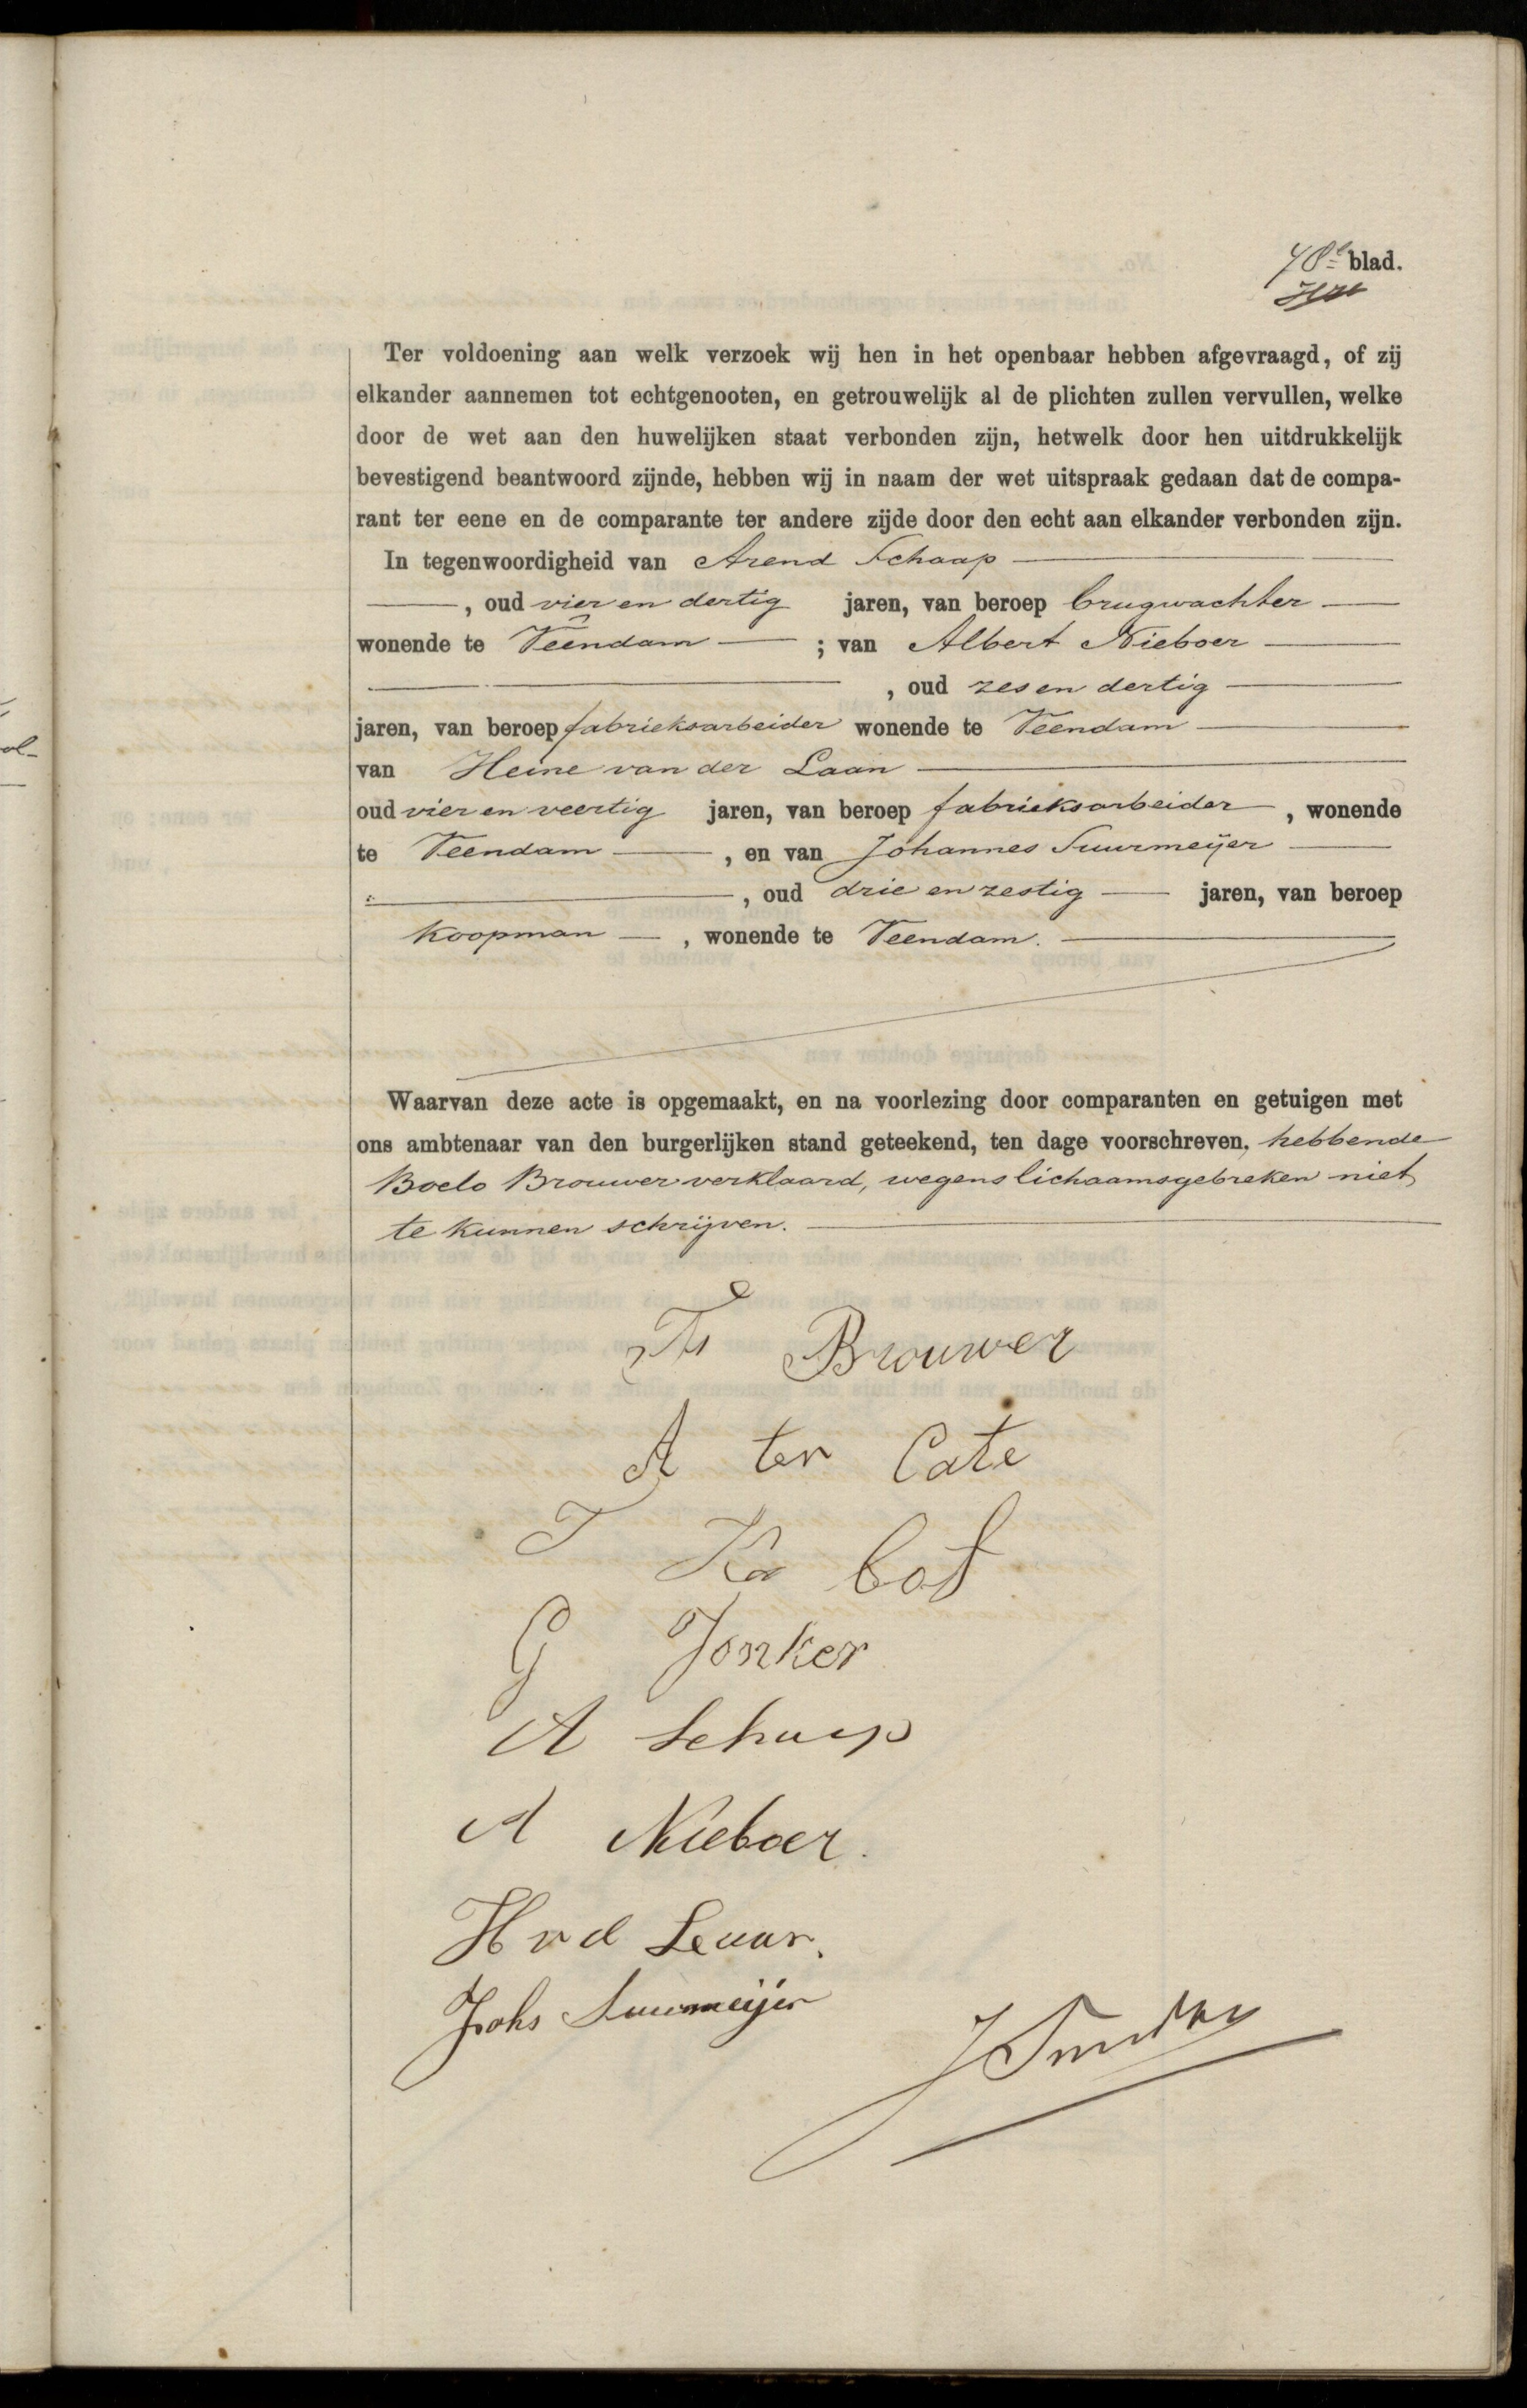 78e blad.
Ter voldoening aan welk verzoek wij hen in het openbaar hebben afgevraagd, of zij
elkander aannemen tot echtgenooten, en getrouwelijk al de plichten zullen vervullen, welke
door de wet aan den huwelijken staat verbonden zijn, hetwelk door hen uitdrukkelijk
bevestigend beantwoord zijnde, hebben wij in naam der wet uitspraak gedaan dat de compa-
rant ter eene en de comparante ter andere zijde door den echt aan elkander verbonden zijn.
In tegenwoordigheid van Arend Schaap
, oud vier en dertig jaren, van beroep brugwachter
wonende te Veendam ; van Albert Nieboer
, oud zes en dertig
jaren, van beroep fabrieksarbeider wonende te Veendam
van Heine van der Laan
oud vier en veertig jaren, van beroep fabrieksarbeider , wonende
te Veendam , en van Johannes Suurmeijer
, oud drie en zestig jaren, van beroep
koopman , wonende te Veendam.
Waarvan deze acte is opgemaakt, en na voorlezing door comparanten en getuigen met
ons ambtenaar van den burgerlijken stand geteekend, ten dage voorschreven, hebbende
Boelo Brouwer verklaard, wegens lichaamsgebreken niet
te kunnen schrijven.
Brouwer
A ter Cate
G Jonker
A Schaap
A Nieboer.
H v d Laan.
Johs Suurmeijer